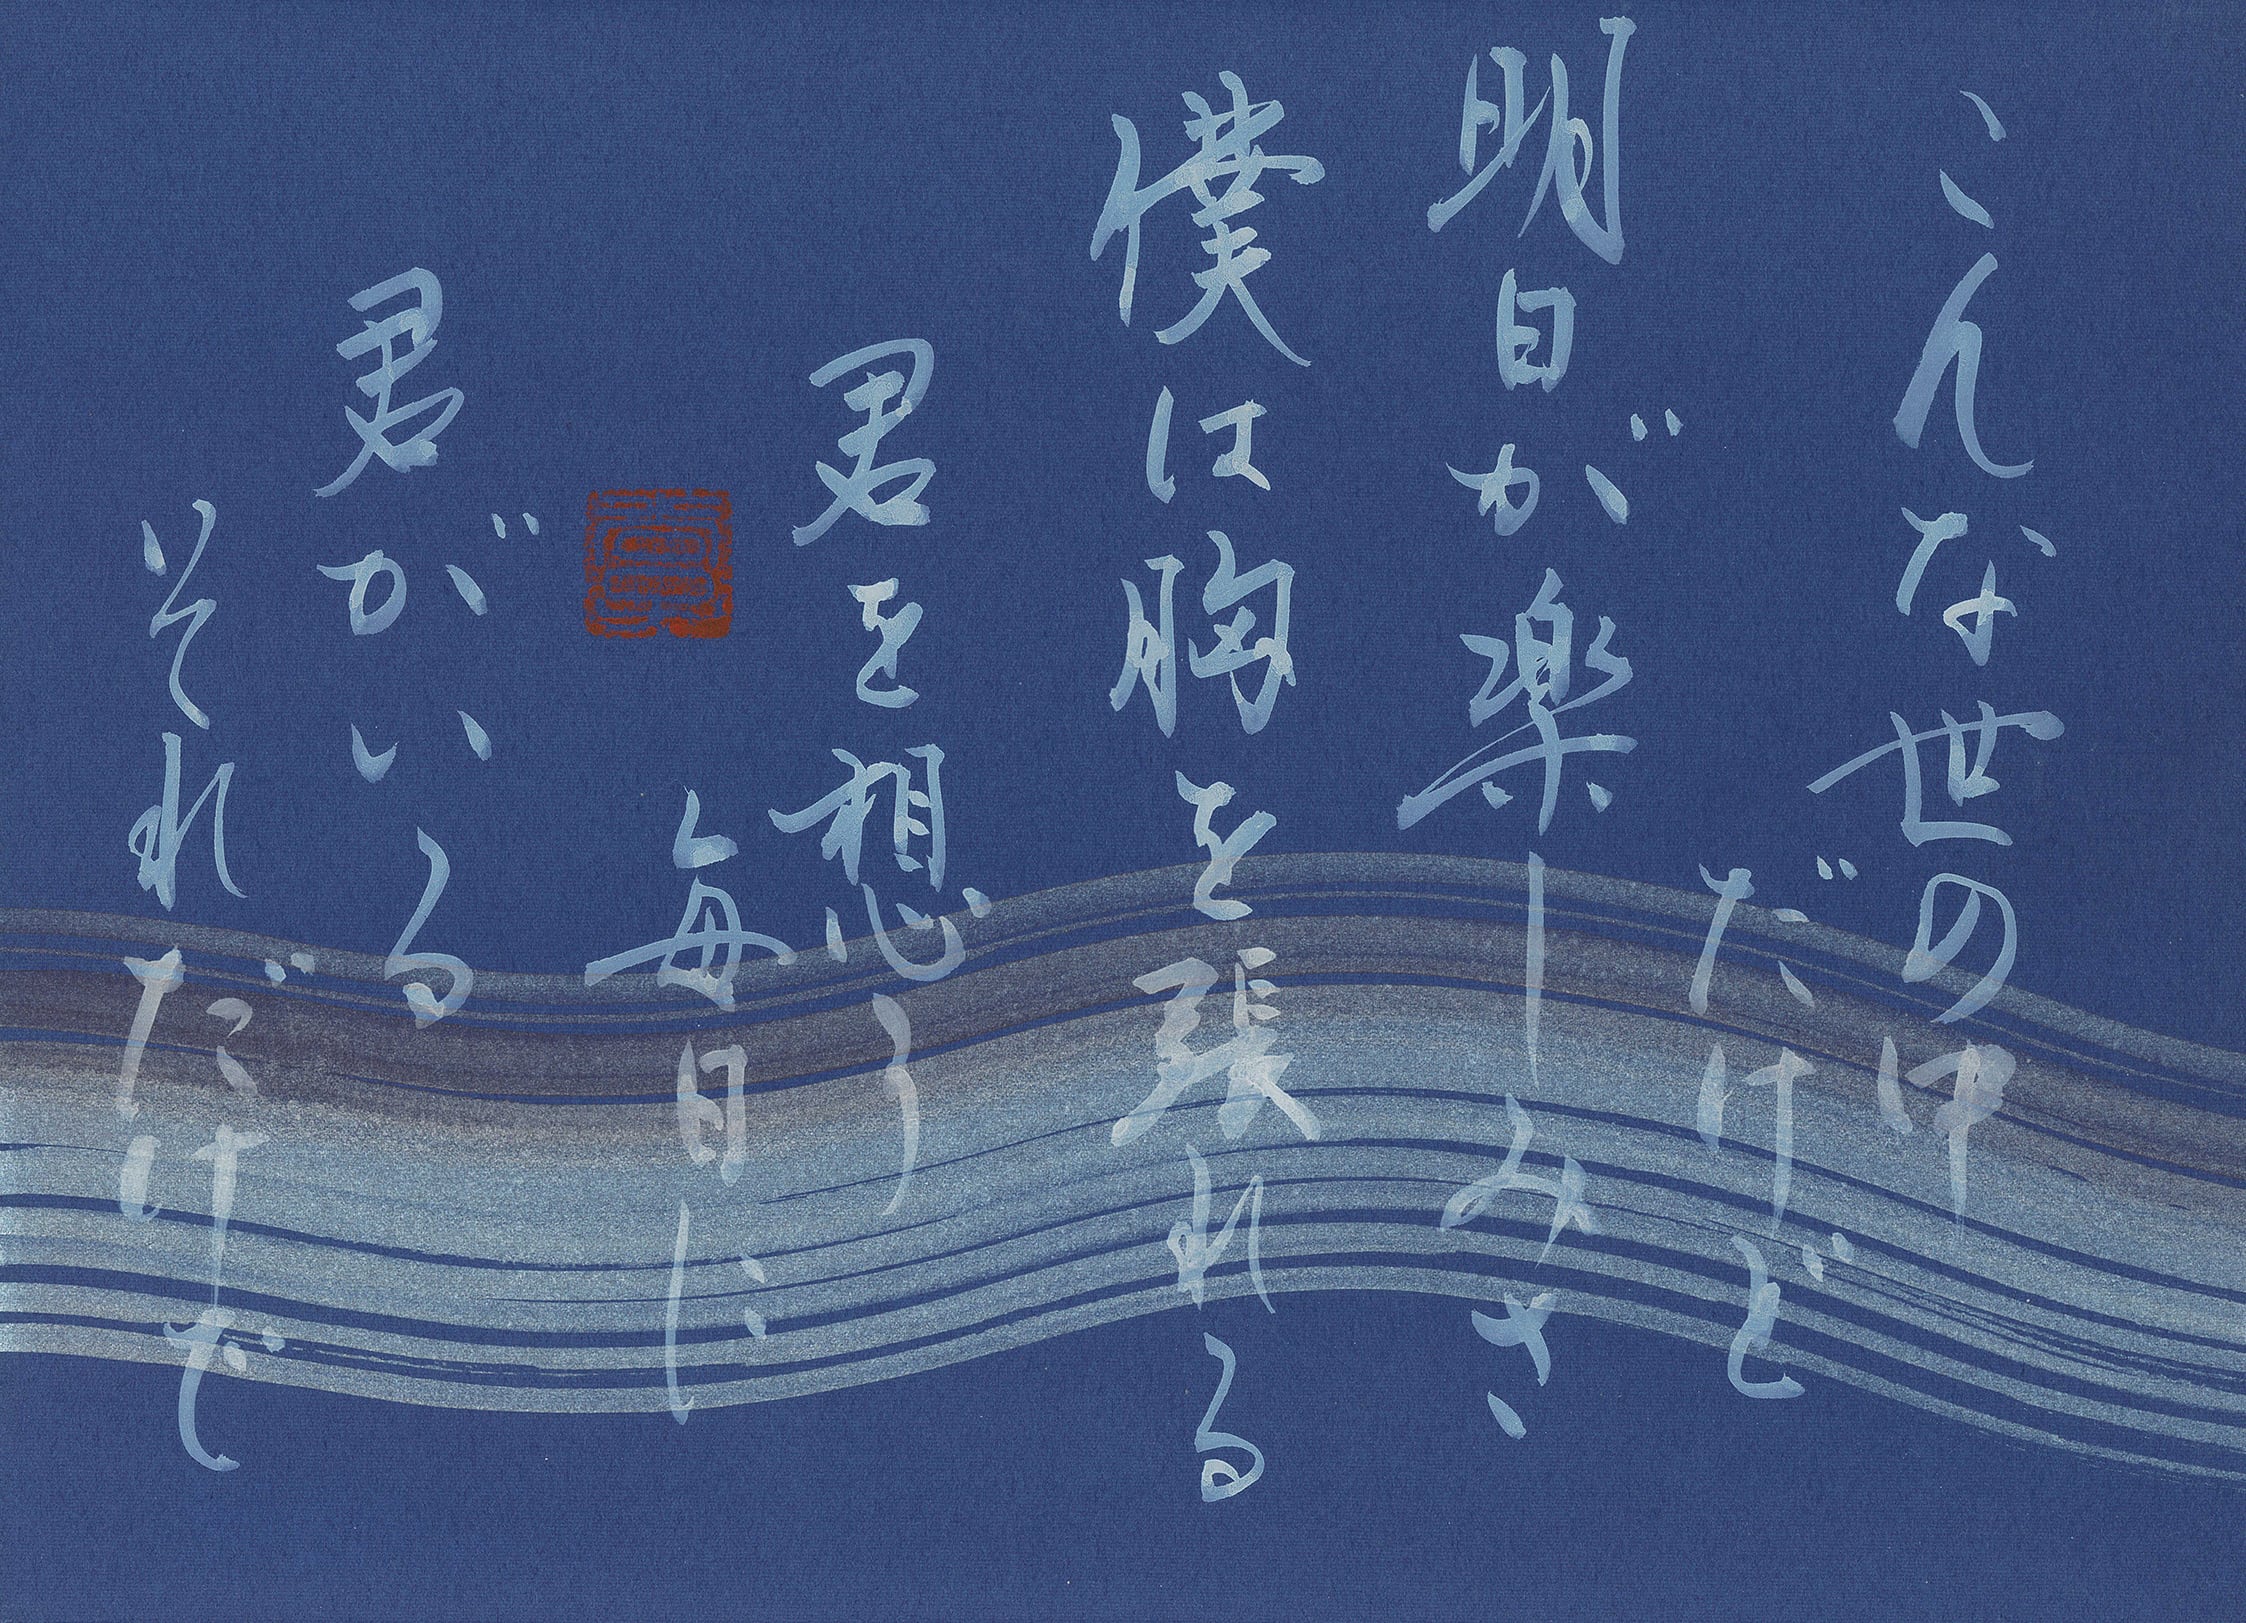 こんな世の中
だけど
明日が楽しみさ
僕は胸を張れる
君を想う
毎日に
君がいる
それだけで